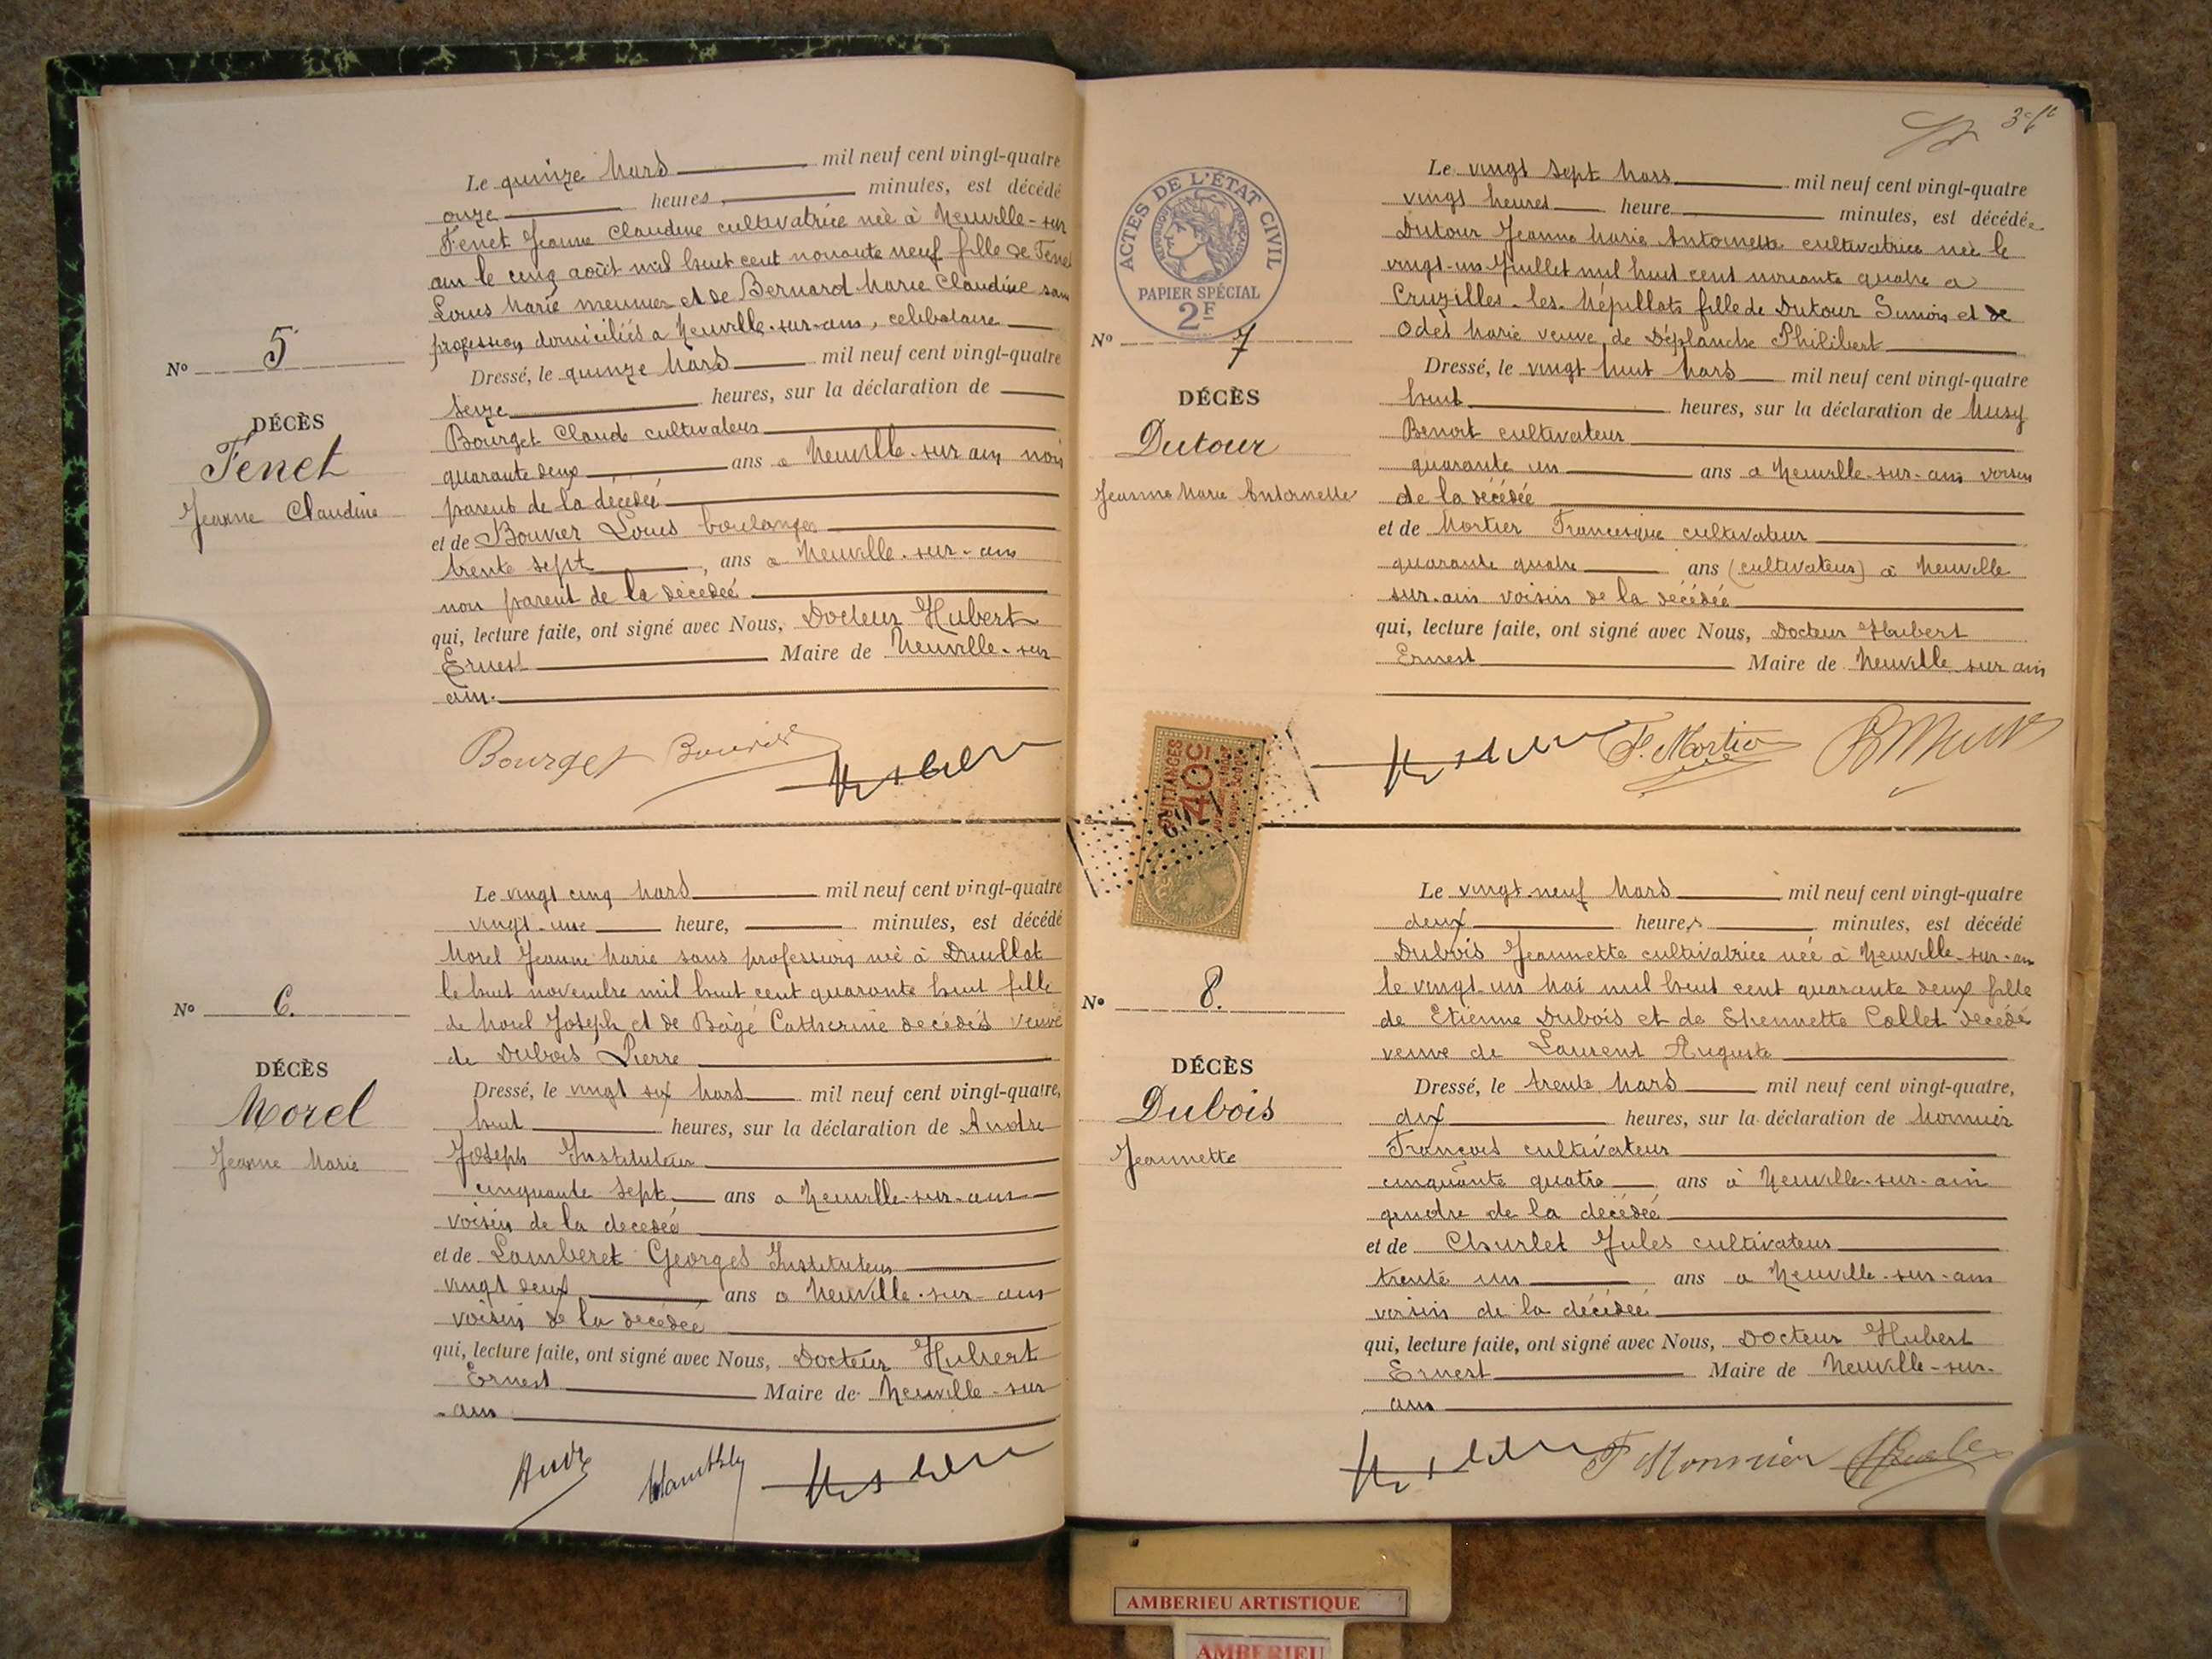 Le quinze Mars mil neuf cent vingt-quatre
onze heures, minutes, est décédé
Fenet Jeanne Claudine cultivatrice née à Neuville-sur
ain le cinq août mil huit cent nonante neuf fille de Fenet
Louis Marie meunier et de Bernard Marie Claudine sans
profession domiciliés a Neuville-sur-ain, celibataire
No 5
Dressé, le quinze Mars mil neuf cent vingt-quatre
seize heures, sur la déclaration de
DÉCÈS
Fenet
Jeanne Claudine
Bourget Claude cultivateur
quarante deux ans a Neuville-sur ain non
parent de la décédeé
et de Bouvier Louis boulanger
trente sept, ans a Neuville-sur-ain
non parent de la décedeé
qui, lecture faite, ont signé avec Nous, Docteur Hubert
Ernest Maire de Neuville-sur
ain.
Bourget Bouvier
Le vingt cinq Mars mil neuf cent vingt-quatre
vingt-une heure, minutes, est décédé
Morel Jeanne Marie sans profession née à Druillat
le huit novembre mil huit cent quarante huit fille
No 6.
de Morel Joseph et de Bagé Catherine decédés veuve
de Dubois Pierre
DÉCÈS
Morel
Jeanne Marie
Dressé, le vingt six Mars mil neuf cent vingt-quatre,
huit heures, sur la déclaration de André
Joseph Instituteur
cinquante sept ans a Neuville-sur-ain
voisin de la decedeé
et de Lamberet Georges Instituteur
vingt deux ans a Neuville-sur-ain
voisin de la decedeé
qui, lecture faite, ont signé avec Nous, Docteur Hubert
Ernest Maire de Neuville-sur
-ain
André
ACTES DE L'ÉTAT CIVIL
RÉPUBLIQUE FRANÇAISE
PAPIER SPÉCIAL
2F
Le vingt sept Mars mil neuf cent vingt-quatre
vingt heures heure minutes, est décédée
Dutour Jeanne Marie Antoinette cultivatrice née le
vingt-un Juillet mil huit cent nonante quatre a
Cruzilles-les-Mépillats fille de Dutour Simon et de
Odet Marie veuve de Déplanche Philibert
No 7
DÉCÈS
Dutour
Jeanne Marie Antoinette
Dressé, le vingt huit Mars mil neuf cent vingt-quatre
huit heures, sur la déclaration de Musy
Benoit cultivateur
quarante un ans a Neuville-sur-ain voisin
de la décédée
et de Mortier Francisque cultivateur
quarante quatre ans (cultivateur) à Neuville
sur-ain voisin de la décédée
qui, lecture faite, ont signé avec Nous, Docteur Hubert
Ernest Maire de Neuville sur ain
F. Mortier B Musy
QUITTANCES
40c
Le vingt-neuf Mars mil neuf cent vingt-quatre
deux heures minutes, est décédé
Dubois Jeannette cultivatrice née à Neuville-sur-ain
le vingt-un Mai mil huit cent quarante deux fille
No 8.
de Etienne Dubois et de Collet décédé
veuve de Laurent Auguste
DÉCÈS
Dubois
Jeannette
Dressé, le trente Mars mil neuf cent vingt-quatre,
dix heures, sur la déclaration de Monnier
François cultivateur
cinquante quatre ans à Neuville-sur-ain
gendre de la décédeé
et de Churlet Jules cultivateur
trente un ans a Neuville-sur-ain
voisin de la décédeé
qui, lecture faite, ont signé avec Nous, Docteur Hubert
Ernest Maire de Neuville-sur-
ain
F Monnier
AMBERIEU ARTISTIQUE
AMBERIEU